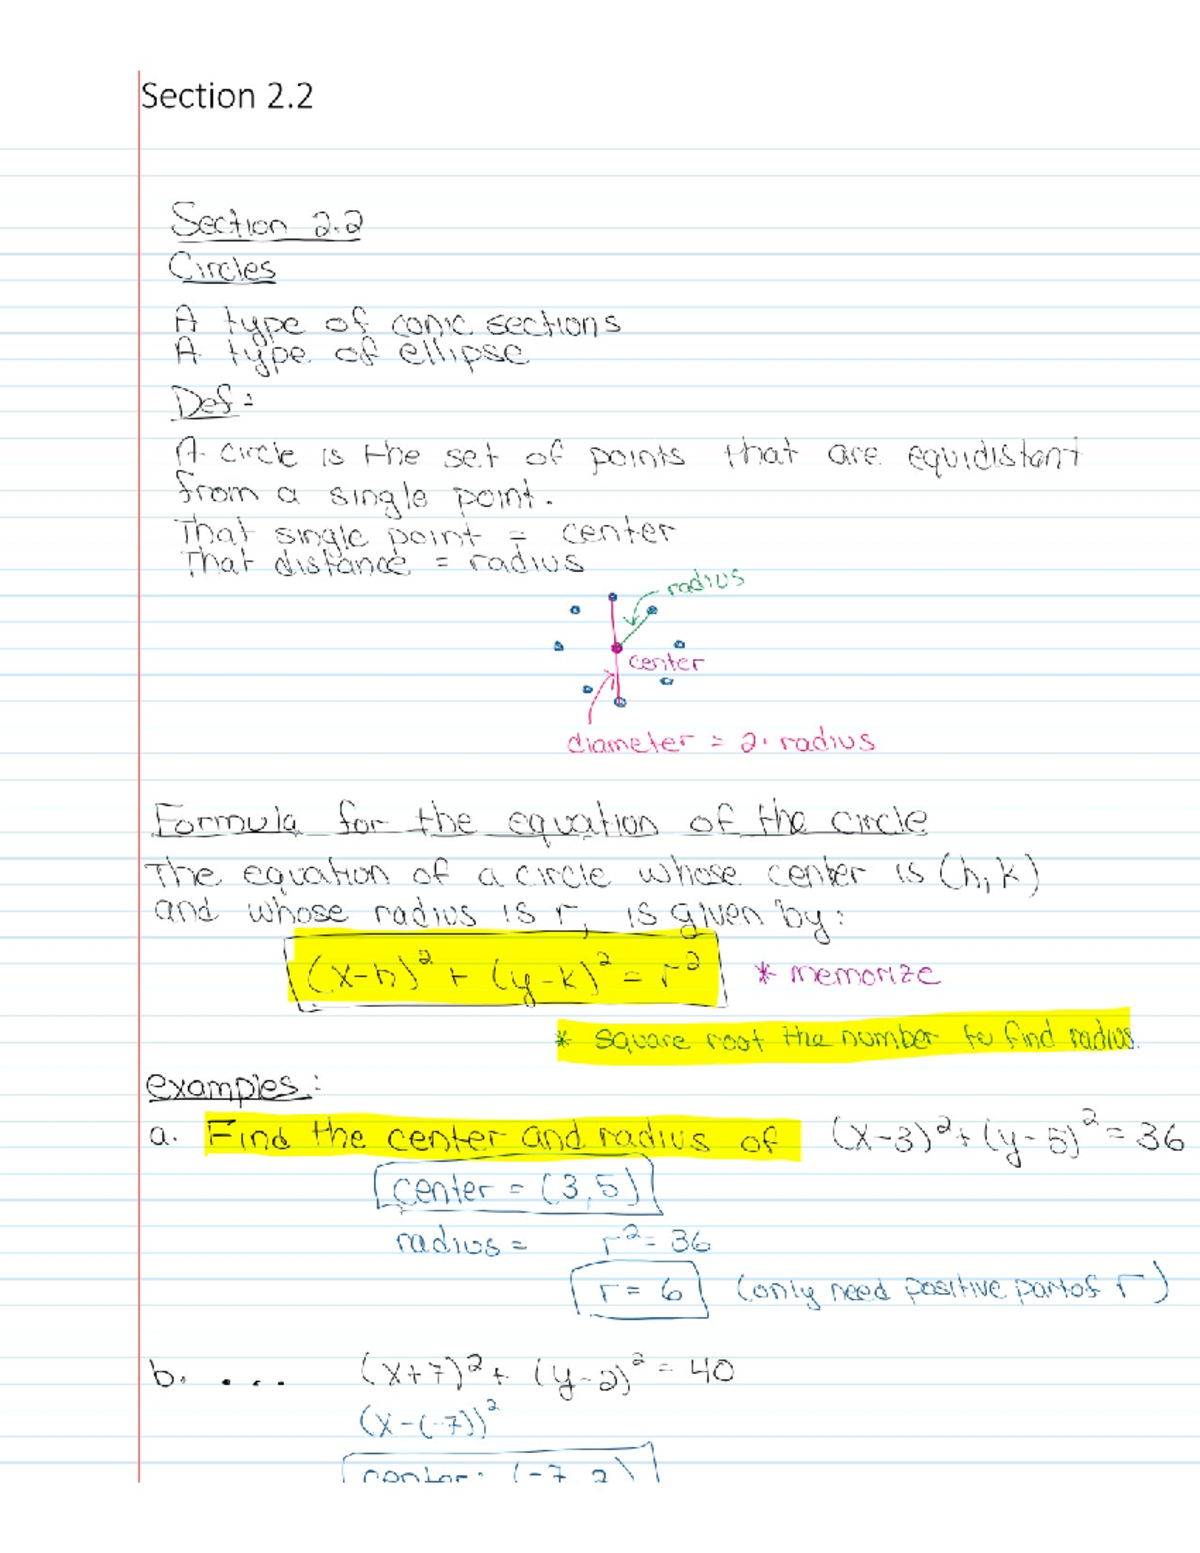 Section 2.2
Section 2.2
Circles
A type of conic sections
A type of ellipse
Def:
A circle is the set of points that are equidistant
from a single point.
That single point = center
That distance = radius
radius
center
diameter = 2· radius
Formula for the equation of the circle
The equation of a circle whose center is (h,k)
and whose radius is r, is given by:
(x-h)² + (y-k)² = r² * memorize
* square root the number to find radius.
examples:
a. Find the center and radius of (x-3)² + (y-5)² = 36
center = (3,5)
radius = r² = 36
r = 6 (only need positive part of r)
b. .... (x+7)² + (y-2)² = 40
(x-(-7))²
center: (-7, 2)